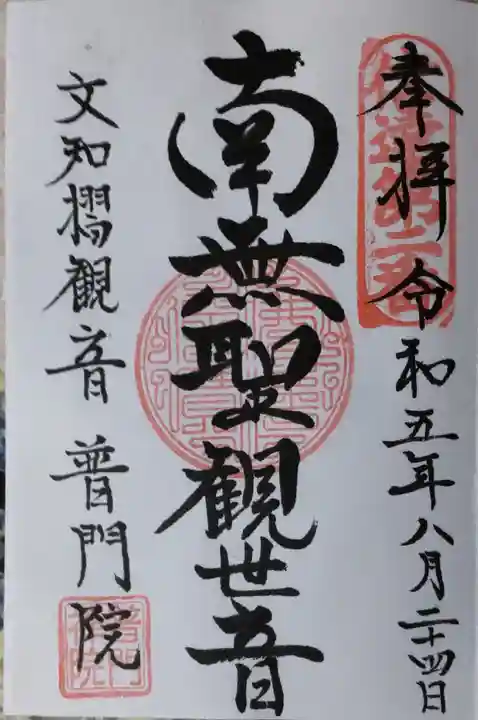 奉拝 令和五年八月二十四日
南無聖観世音
文知摺観音 普門院